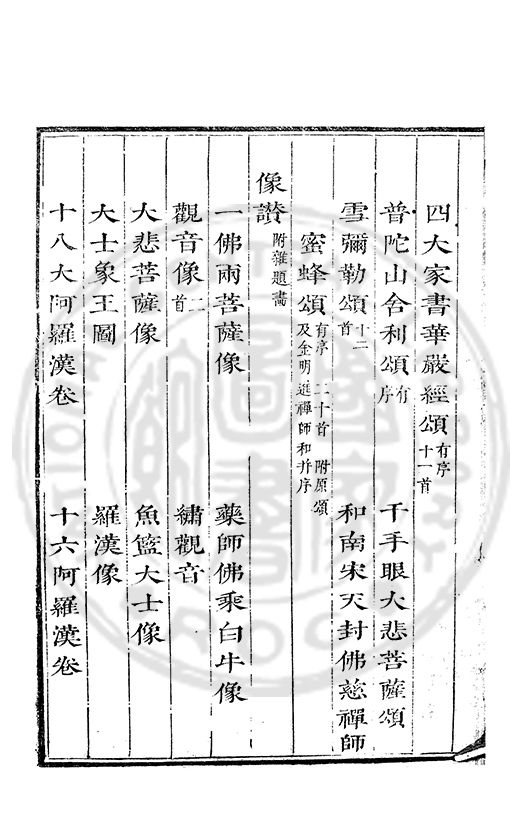 四大家書華嚴經頌有序十一首
普陀山舍利頌有序　千手眼大悲菩薩頌
雪彌勒頌十二首　和南宋天封佛慈禪師
蜜蜂頌有序　二十首　附原頌及金明進禪師和并序
像讃附雜題畵
一佛兩菩薩像　藥師佛乘白牛像
觀音像二首　繡觀音
大悲菩薩像　魚籃大士像
大士象王圖　羅漢像
十八大阿羅漢卷　十六阿羅漢卷